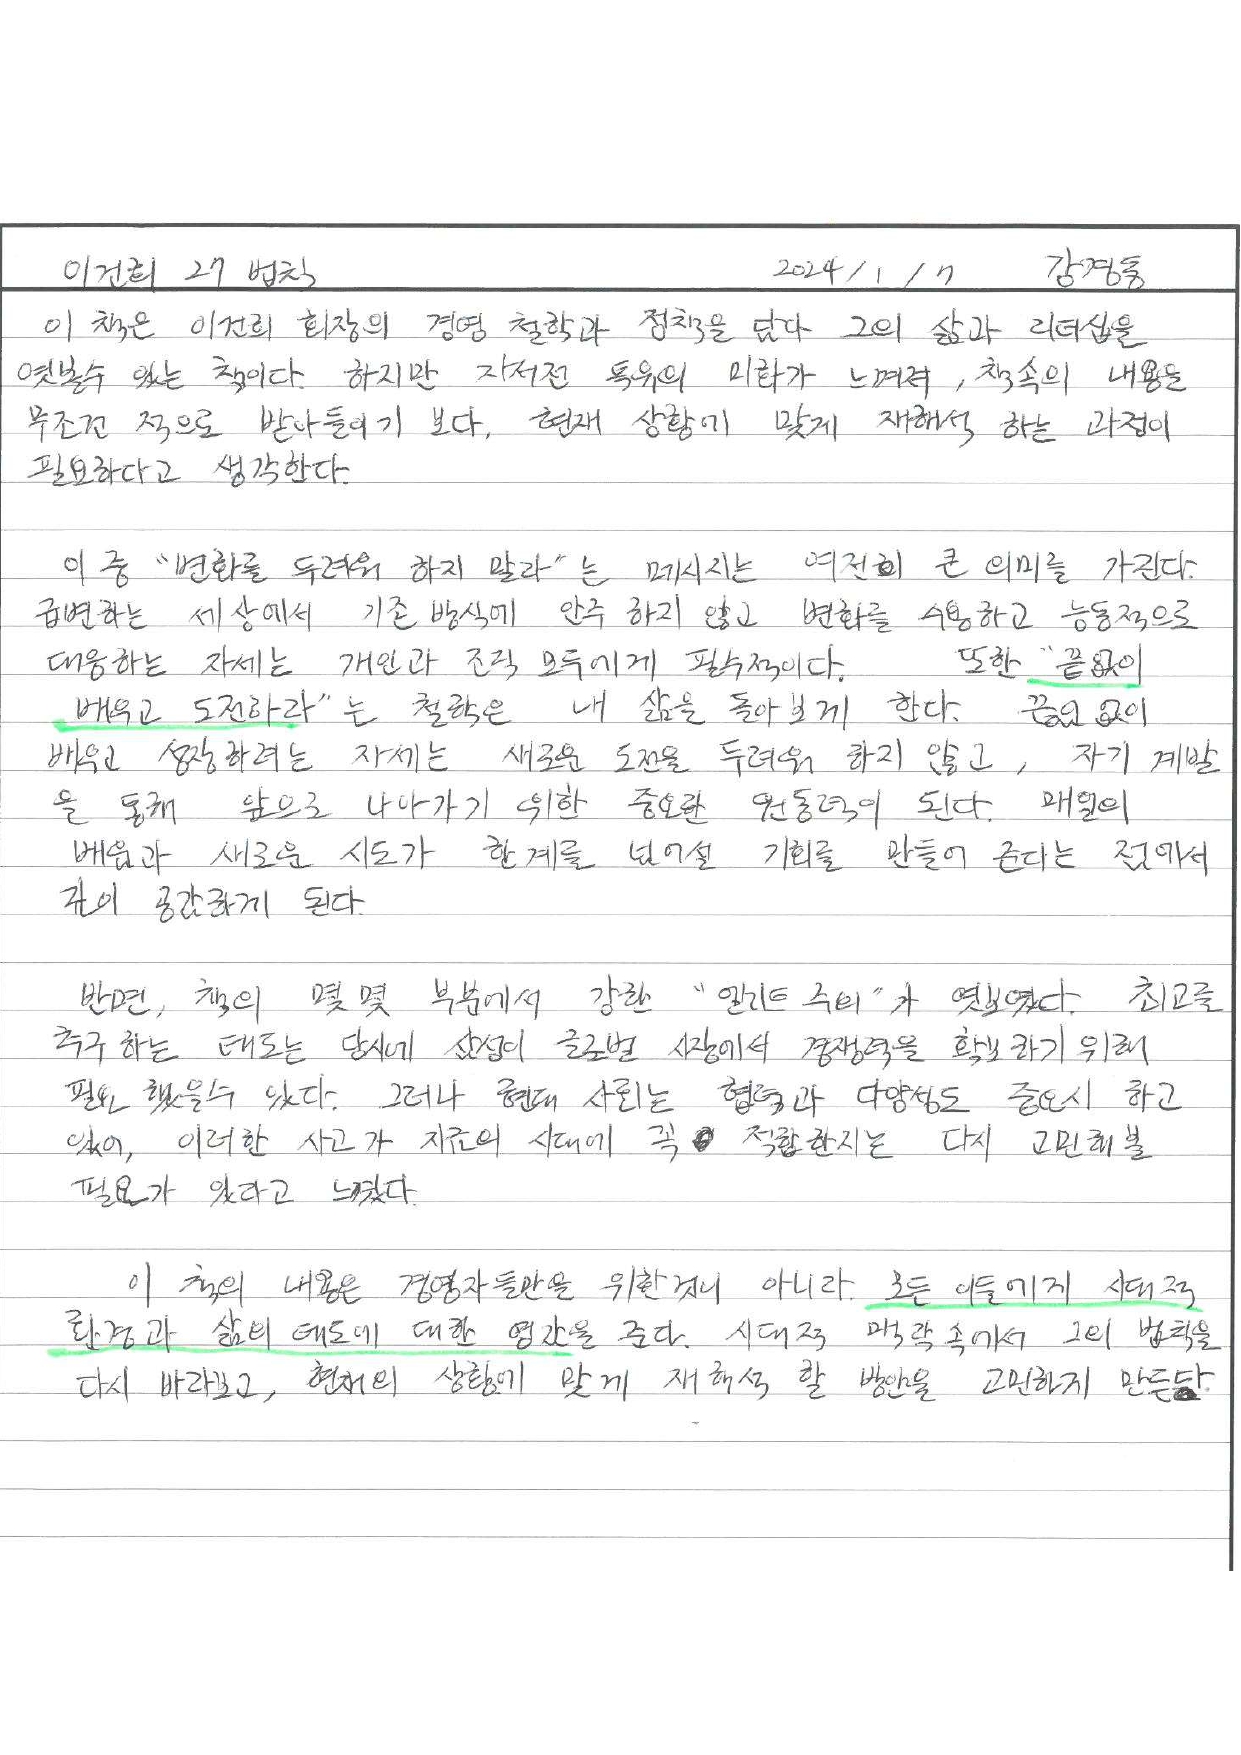 이건희 27 법칙 2024/1/7 강경통
이 책은 이건희 회장의 경영 철학과 정책을 담다 그의 삶과 리더십을
엿볼수 있는 책이다. 하지만 자서전 특유의 미화가 느껴져, 책속의 내용을
무조건 적으로 받아들이기 보다, 현재 상황에 맞게 재해석 하는 과정이
필요하다고 생각한다.
이 중 "변화를 두려워 하지 말라"는 메시지는 여전히 큰 의미를 가진다.
급변하는 세상에서 기존 방식에 안주 하지 않고 변화를 수용하고 능동적으로
대응하는 자세는 개인과 조직 모두에게 필수적이다. 또한 "끝없이
배우고 도전하라"는 철학은 내 삶을 돌아보게 한다. 끝없이
배우고 성장하려는 자세는 새로운 도전을 두려워 하지 않고, 자기 계발
을 통해 앞으로 나아가기 위한 중요한 원동력이 된다. 매일의
배움과 새로운 시도가 한계를 넘어설 기회를 만들어 준다는 점에서
깊이 공감하게 된다.
반면, 책의 몇몇 부분에서 강한 "엘리트 주의"가 엿보였다. 최고를
추구 하는 태도는 당시에 삼성이 글로벌 시장에서 경쟁력을 확보 하기 위해
필요 했을수 있다. 그러나 현대 사회는 협력과 다양성도 중요시 하고
있어, 이러한 사고가 지금의 시대에 꼭 적합한지는 다시 고민해볼
필요가 있다고 느꼈다.
이 책의 내용은 경영자들만을 위한것이 아니라. 모든 이들에게 시대적
환경과 삶의 태도에 대한 영감을 준다. 시대적 맥락 속에서 그의 법칙을
다시 바라보고, 현재의 상황에 맞게 재해석 할 방안을 고민하게 만든다.